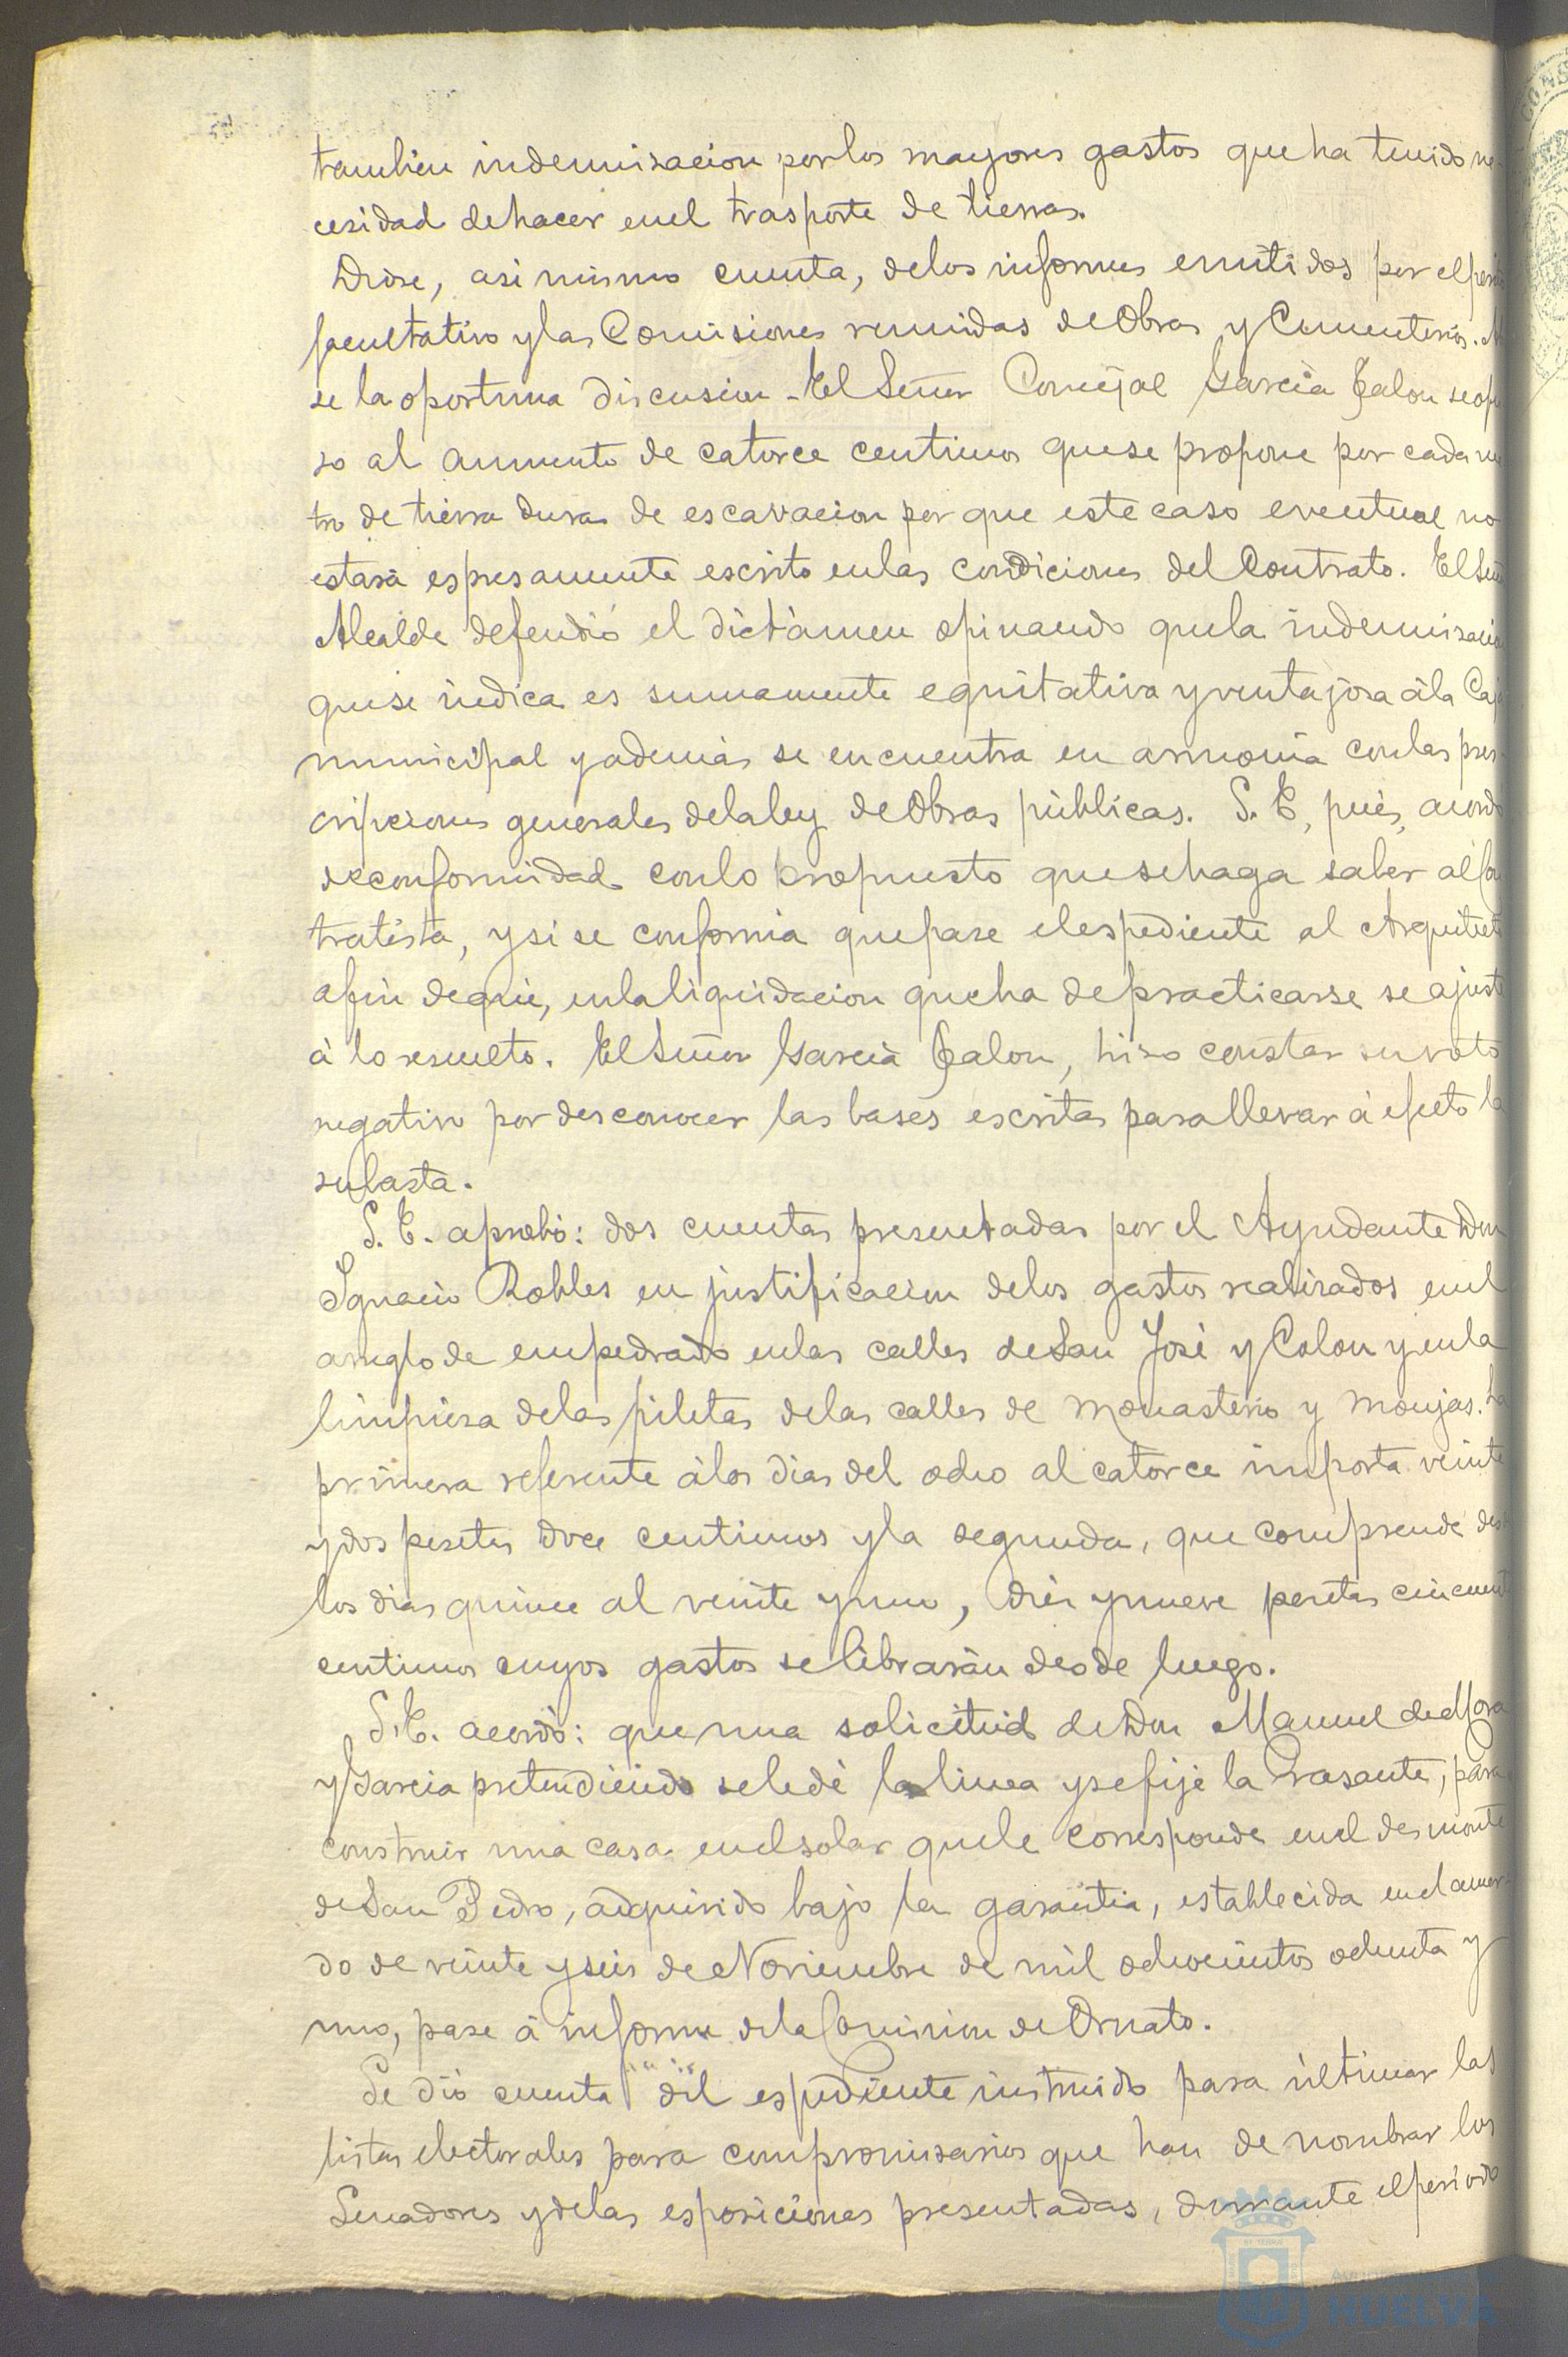 tambien indemnisacion por los mayores gastos que ha tenido ne
cesidad de hacer en el trasporte de tierras.
Diose, asi mismo cuenta, de los informes emitidos por el perito
facultativo y las Comisiones reunidas de Obras y Cementerios.
se la oportuna discusion - El Señor Concejal Garcia Jalon seopu
so al aumento de catorce centimos que se propone por cada me
tro de tierra dura de escavacion por que este caso eventual no
estará espresamente escrito en las condiciones del Contrato. El Señor
Alcalde defendió el dictámen opinando que la indemnisacion
que se indica es sumamente equitativa y ventajosa á la Caja
municipal y además se encuentra en armonia con las pres-
cripciones generales de la ley de Obras públicas. S. E, pués, acordó
de conformidad con lo propuesto que se haga saber al Con
tratista, y si se conforma que pase el espediente al Arquitecto
a fin de que, en la liquidacion que ha de practicarse se ajuste
á lo resuelto. El Señor Garcia Jalon, hiso constar su voto
negativo por desconocer las bases escritas para llevar á efecto la
subasta.
S. E. aprobó: dos cuentas presentadas por el Ayudante Don
Ignacio Robles en justificacion de los gastos realizados en el
arreglo de empedrado en las calles de San José y Colon y en la
limpieza de las piletas de las calles de Monasterio y Monjas. La
primera referente á los dias del ocho al catorce importa veinte
y dos pesetas doce centimos y la segunda, que comprende des
los dias quince al veinte y uno, diez y nueve pesetas cincuenta
centimos cuyos gastos se librarán desde luego.
S. E. acordó: que una solicitud de Don Manuel de Mora
y Garcia pretendiendo se le dé la linea y se fije la rasante, para
construir una casa en el solar que le corresponde en el desmonte
de San Pedro, adquirido bajo la garantia, establecida en el acuer-
do de veinte y seis de Noviembre de mil ochocientos ochenta y
uno, pase á informe de la Comision de Ornato.
Se dió cuenta del espediente instruido para ultimar las
listas electorales para compromisarios que han de nombrar los
Senadores y de las esposiciones presentadas, durante el periodo
HUELVA